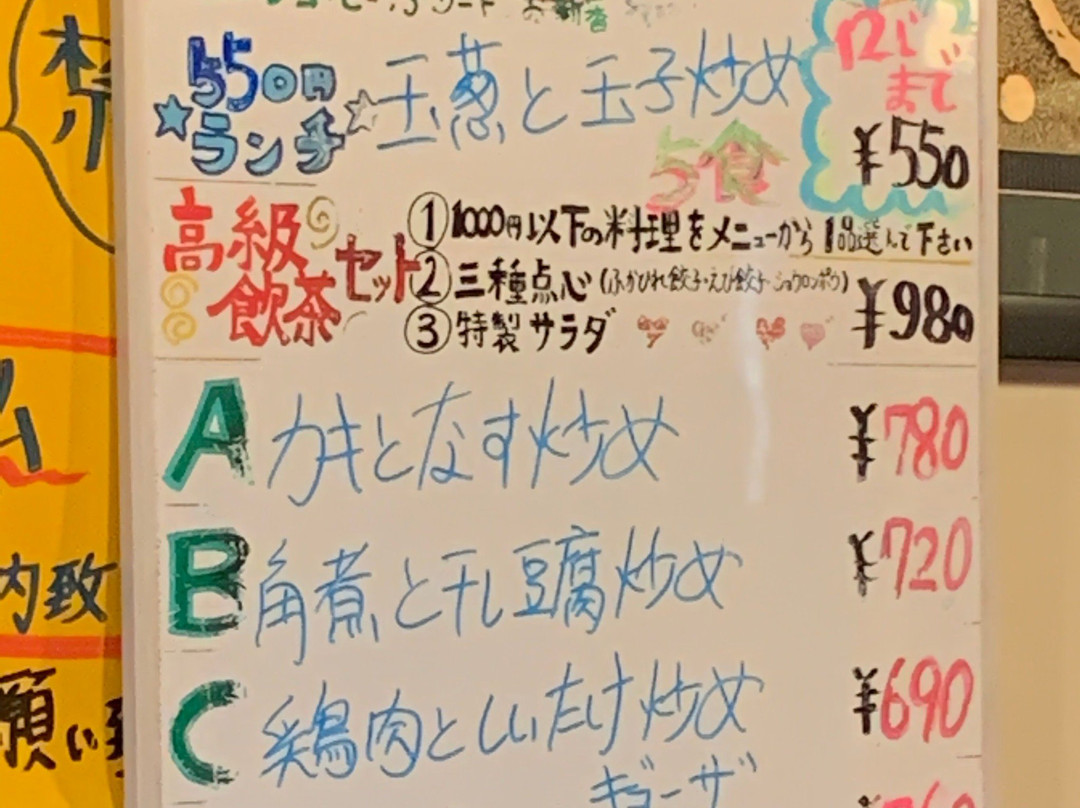 550円
ランチ
玉葱と玉子炒め
5食
12じ
まで
¥550
高級
飲茶
セット
①1000円以下の料理をメニューから1品選んで下さい
②三種点心(ふかひれ餃子・えび餃子・ショウロンポウ)
③特製サラダ
¥980
A カキとなす炒め ¥780
B 角煮と干し豆腐炒め ¥720
C 鶏肉としいたけ炒め ¥690
ギョーザ
内致
願い